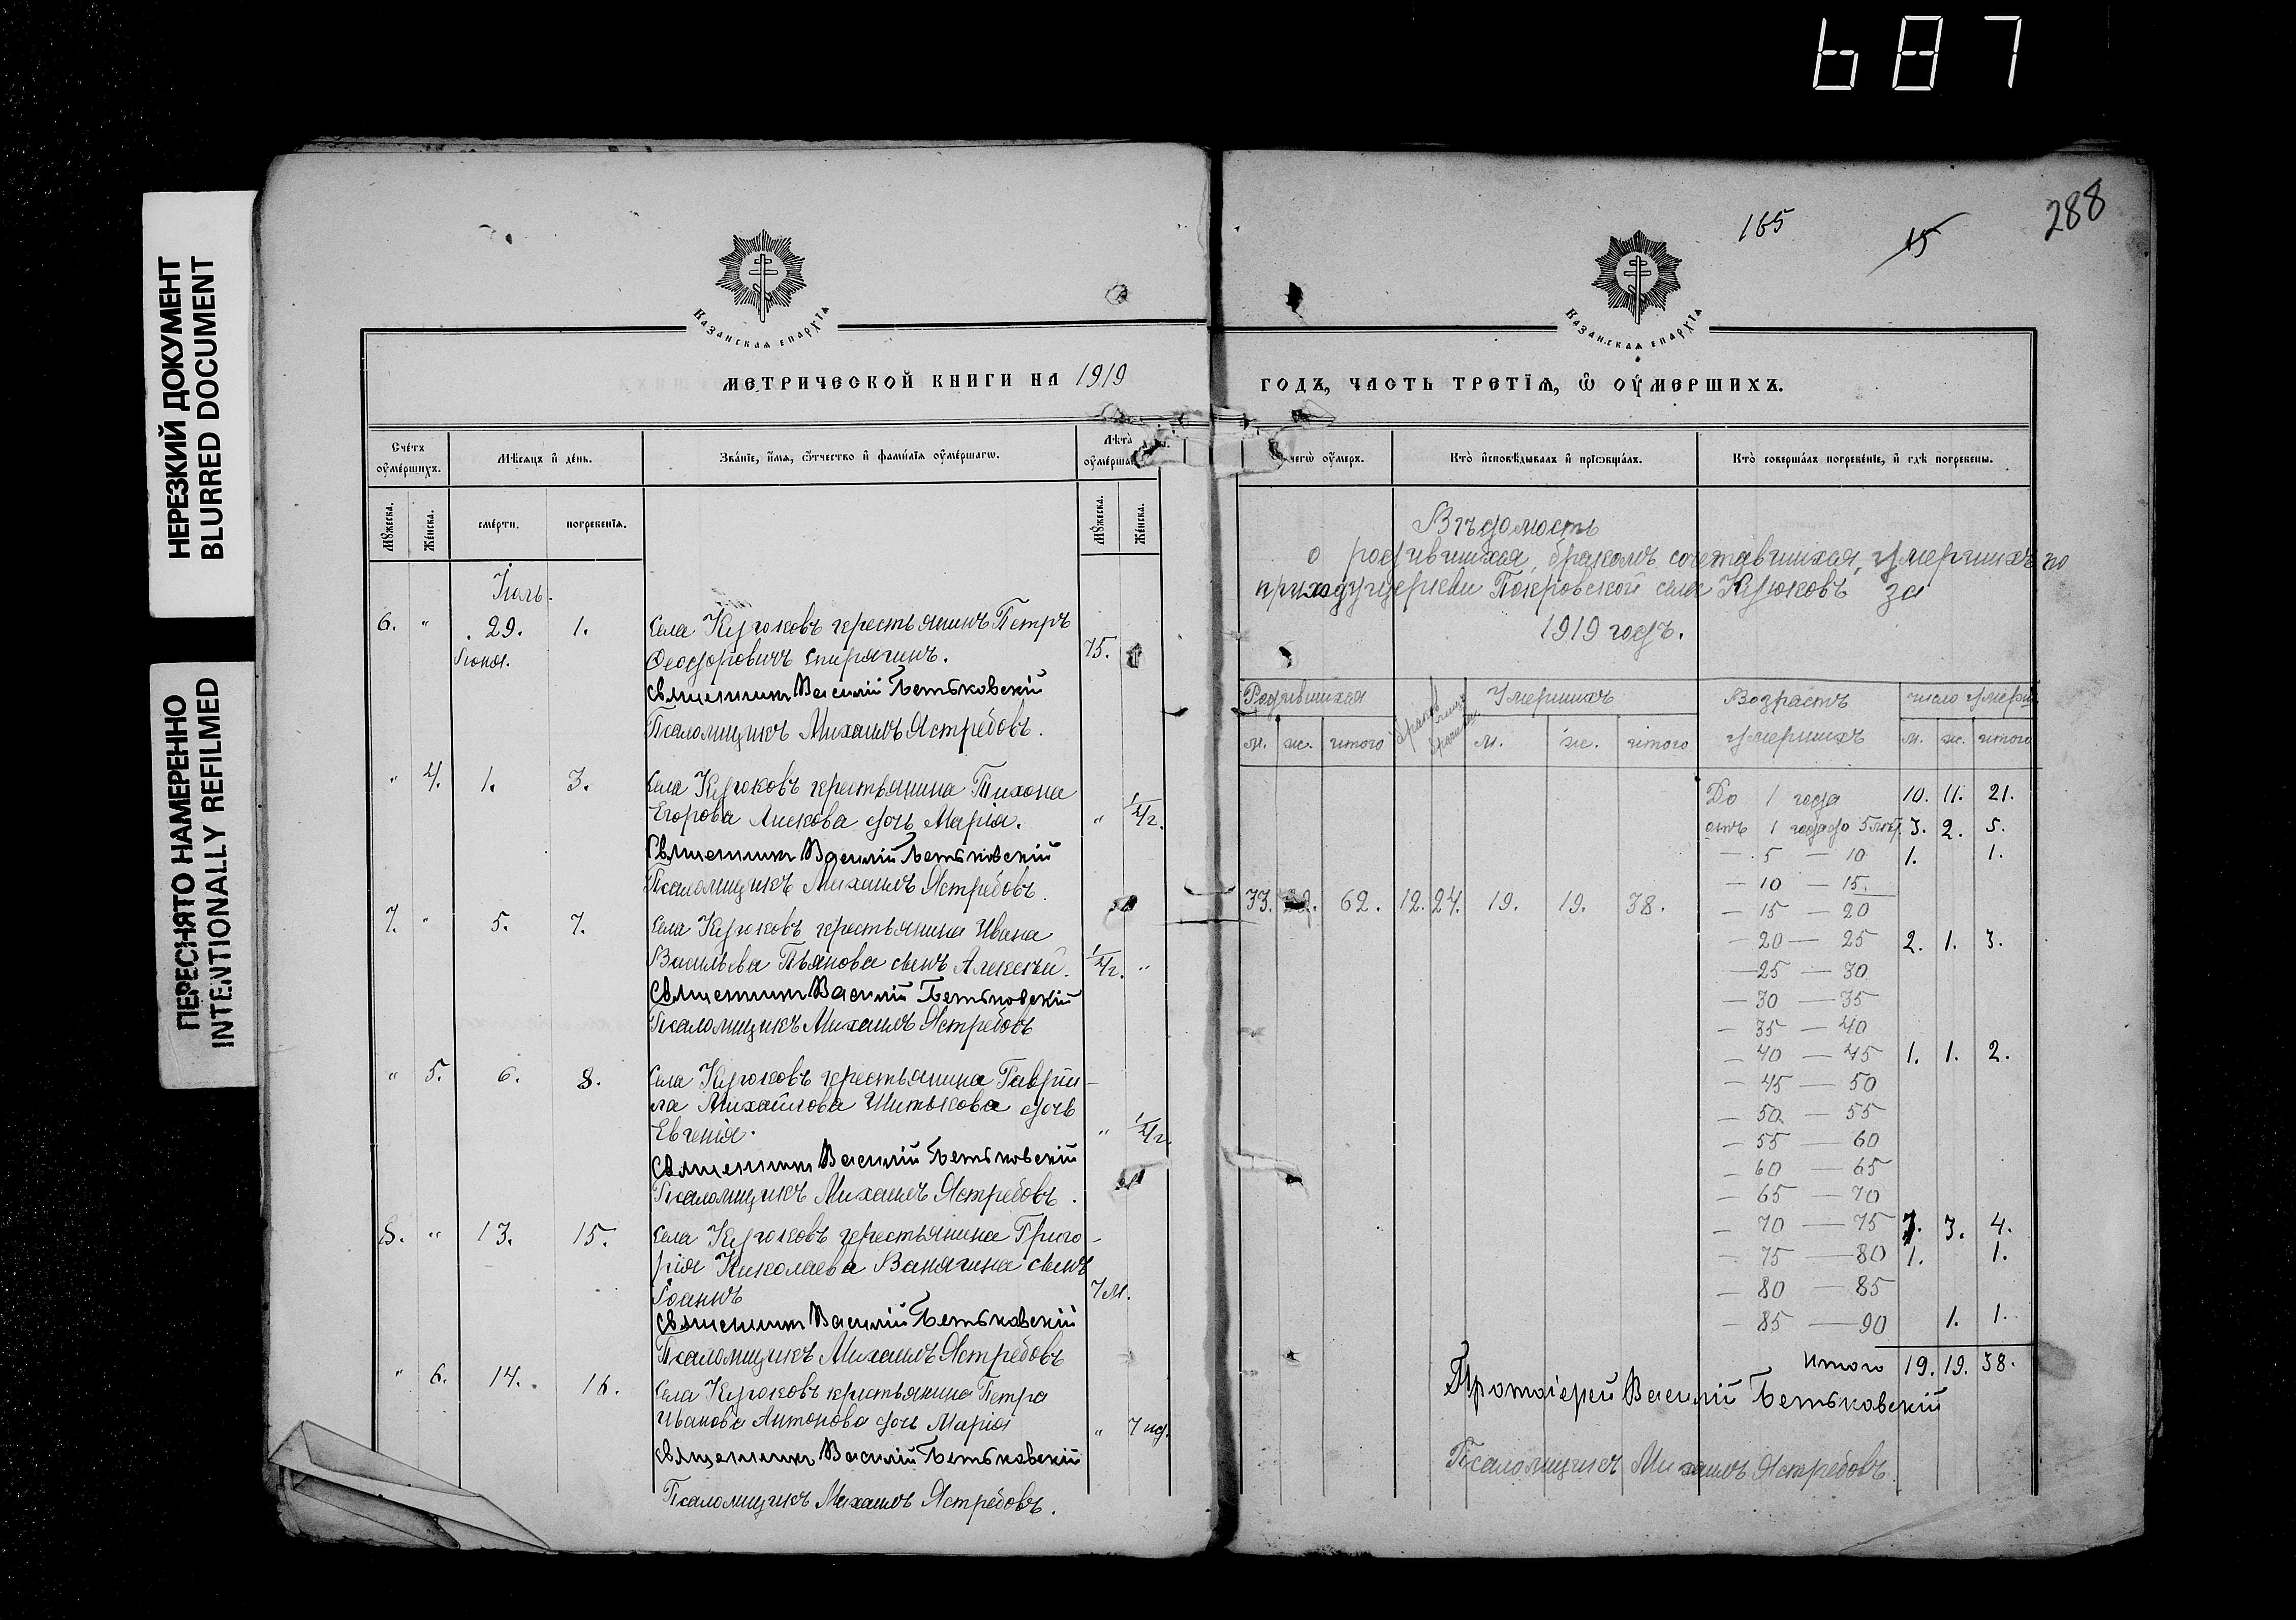 687
НЕРЕЗКИЙ ДОКУМЕНТ
BLURRED DOCUMENT
ПЕРЕСНЯТО НАМЕРЕННО
INTENTIONALLY REFILMED
Казанская епархія
МЕТРИЧЕСКОЙ КНИГИ НА 1919
Счетъ оумершихъ.
Мѣсяцъ и день.
Званіе, имя, отчество и фамилія оумершагѡ.
Лѣта
Мужеска.
Женска.
смерти.
погребенія.
Мужеска.
Женска.
Іюль.
6. " 29. 1. Села Кудюковъ крестьянинъ Петръ
Іюня. Ѳеодоровичъ Спирягинъ. 75.
Священникъ Василій Бетьковскій
Псаломщикъ Михаилъ Ястребовъ.
" 4. 1. 3. Села Кудюковъ крестьянина Тихона
Егорова дочь Марія. " 1/2 г.
Священникъ Василій Бетьковскій
Псаломщикъ Михаилъ Ястребовъ.
7. " 5. 7. Села Кудюковъ крестьянина Ивана
Васильева Пьянова сынъ Алексѣй. 1/2 г. "
Священникъ Василій Бетьковскій
Псаломщикъ Михаилъ Ястребовъ
" 5. 6. 8. Села Кудюковъ крестьянина Гаврии-
ла Михайлова Шитькова дочь
Евгенія. " 1/2 г.
Священникъ Василій Бетьковскій
Псаломщикъ Михаилъ Ястребовъ.
8. " 13. 15. Села Кудюковъ крестьянина Григо-
рія Николаева Ванягина сынъ
Іоаннъ 7 м.
Священникъ Василій Бетьковскій
Псаломщикъ Михаилъ Ястребовъ
" 6. 14. 16. Села Кудюковъ крестьянина Петра
Иванова Антонова дочь Марія " 7 нд.
Священникъ Василій Бетьковскій
Псаломщикъ Михаилъ Ястребовъ.
165 15 288
Казанская епархія
ГОДЪ, ЧАСТЬ ТРЕТІЯ, Ѡ ОУМЕРШИХЪ.
чегѡ оумеръ.
Кто исповѣдывалъ и пріѡбщалъ.
Кто совершалъ погребеніе, и гдѣ погребены.
Вѣдомость
о родившихся, бракомъ сочетавшихся, умершихъ по
приходу церкви Покровской села Кудюковъ за
1919 годъ.
Родившихся Умершихъ Возрастъ число умерш
м. ж. итого м. ж. итого умершихъ м. ж. итого
До 1 года 10. 11. 21.
отъ 1 года до 5 лѣт. 3. 2. 5.
— 5 — 10 1. 1.
— 10 — 15.
33. 62. 12. 24. 19. 19. 38. — 15 — 20
— 20 — 25 2. 1. 3.
— 25 — 30
— 30 — 35
— 35 — 40
— 40 — 45 1. 1. 2.
— 45 — 50
— 50 — 55
— 55 — 60
— 60 — 65
— 65 — 70
— 70 — 75 3. 4.
— 75 — 80 1. 1.
— 80 — 85
— 85 — 90 1. 1.
Итого 19. 19. 38.
Протоіерей Василій Бетьковскій
Псаломщикъ Михаилъ Ястребовъ.